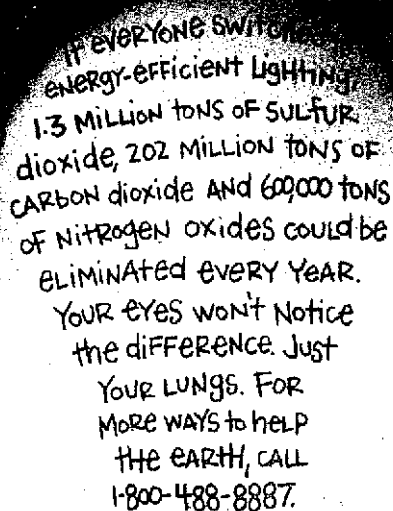 If everyone switched
energy-efficient lighting,
1.3 million tons of sulfur
dioxide, 202 million tons of
carbon dioxide and 600,000 tons
of nitrogen oxides could be
eliminated every year.
Your eyes won't notice
the difference. Just
your lungs. For
more ways to help
the earth, call
1-800-488-8887.